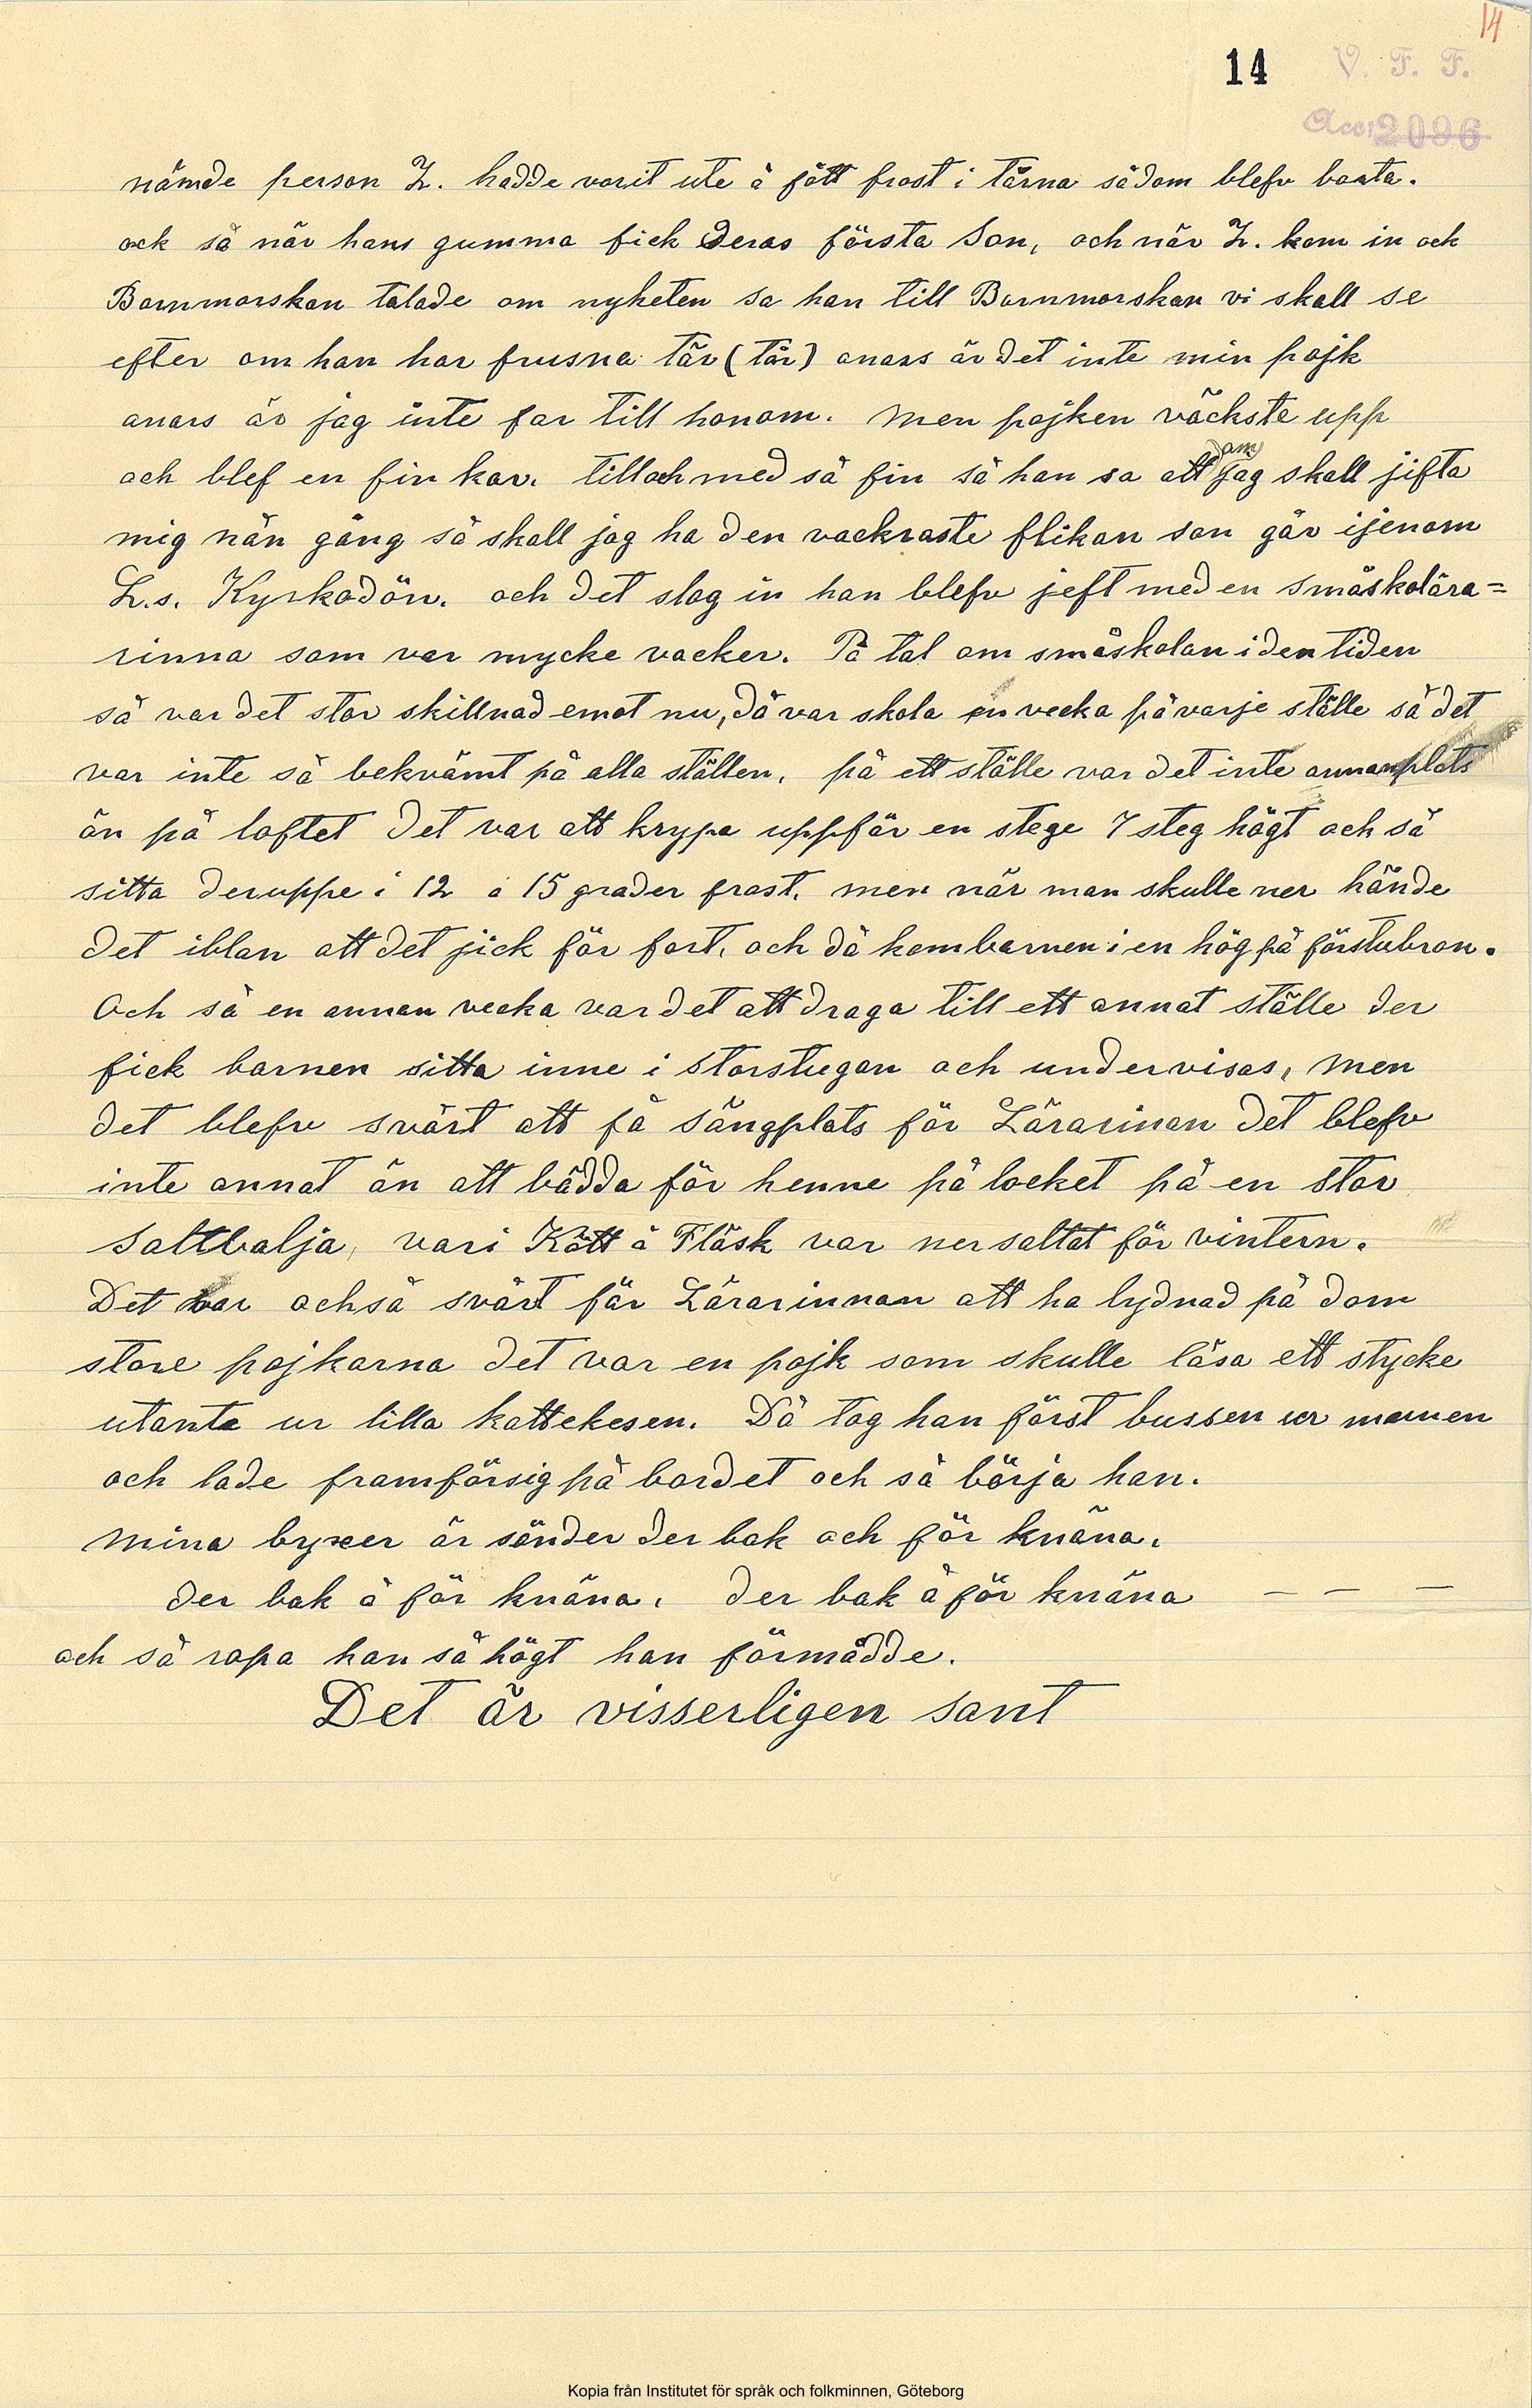 14
14
V. F. F.
Acc. 2096
nämde person Z. hadde vorit ute å fått frost i tårna sådom blefv borta.
ock så när hans gumma fick Deras första Son, och när Z. kom in ock
Barnmorskan talade om nyheten sa han till Barnmorskan vi skall se
efter om han har frusna tär (tår) anars är det inte min pojk
anars är jag inte far till honom. Men pojken väckste upp
och blef en fin kar. till och med så fin så han sa att (om) jag skall jifta
mig nån gång så skall jag ha den vackraste flikan son går ijenom
L.s. Kyrkodörr. och det slog in han blefv jeft med en småskolära=
rinna som var mycke vacker. På tal om småskolan i den tiden
så var det stor skillnad emot nu, då var skola en vecka på varje ställe så det
var inte så bekvämt på alla ställen, på ett ställe var det inte annanplats
än på loftet det var att krypa uppför en stege 7 steg högt och så
sitta deruppe i 12 a 15 grader frost. men när man skulle ner hände
det iblan att det jick för fort, och då kom barnen i en hög på förstubron.
Och så en annan vecka var det att draga till ett annat ställe der
fick barnen sitta inne i storstugan och undervisas, men
det blefv svårt att få sängplats för Lärarinan det blefv
inte annat än att bädda för henne på locket på en stor
saltbalja, vari Kött å Fläsk var nersaltat för vintern.
Det var också svårt för Lärarinnan att ha lydnad på dom
store pojkarna det var en pojk som skulle läsa ett stycke
utanta ur lilla kattekesen. Då tog han först bussen ur munen
och lade framförsig på bordet och så börja han.
Mina byxer är sönder der bak och för knäna.
der bak å för knäna. der bak å för knäna — — —
och så ropa han så högt han förmådde.
Det är visserligen sant
Kopia från Institutet för språk och folkminnen, Göteborg